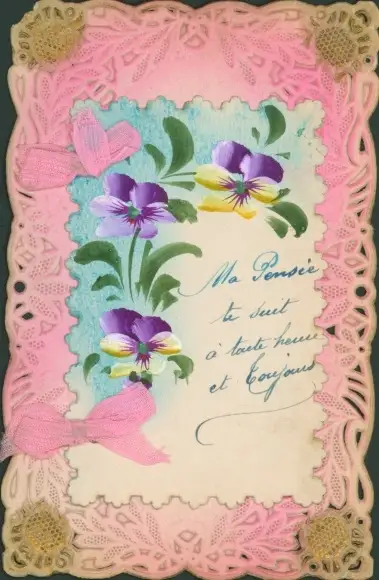 Ma Pensée
te suit
à toute heure
et Toujours